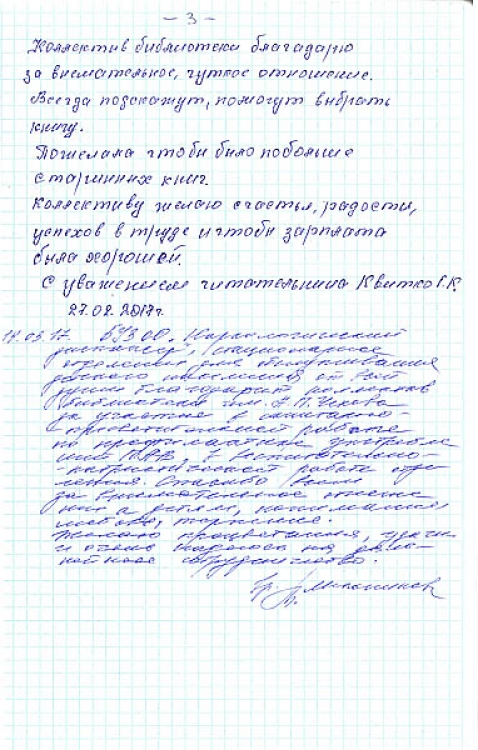 - 3 -
Коллектив библиотеки благодарю
за внимательное, чуткое отношение.
Всегда подскажут, помогут выбрать
книгу.
Пожелала чтобы было побольше
старинных книг.
Коллективу желаю счастья, радости,
успехов в труде и чтобы зарплата
была хорошей.
С уважением читательница Квитко Г.К.
27.02.2017г.
14.03.17. БУЗОО "Наркологический
диспансер", стационарное
отделение для
от всей
души благодарит коллектив
библиотеки им. А.П. Чехова
за участие в санитарно-
-просветительской работе
по профилактике употребле
ния ПАВ, в воспитательно-
-патриотической работе отде
ления. Спасибо Вам
за внимательное отноше
ние к детям, понимание,
терпение.
Желаю процветания, удачи
и очень надеюсь на даль
нейшее сотрудничество.